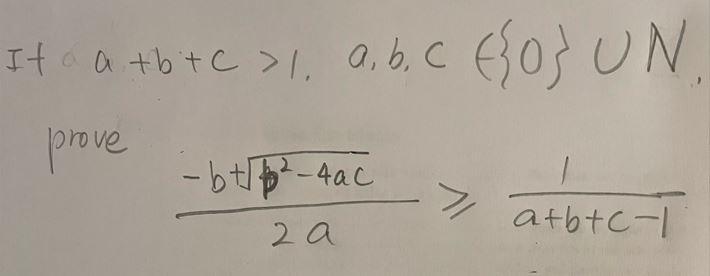 If a + b + c > 1, a, b, c ∈ {0} ∪ N,
prove
(-b + √(b² - 4ac)) / 2a ≥ 1 / (a + b + c - 1)